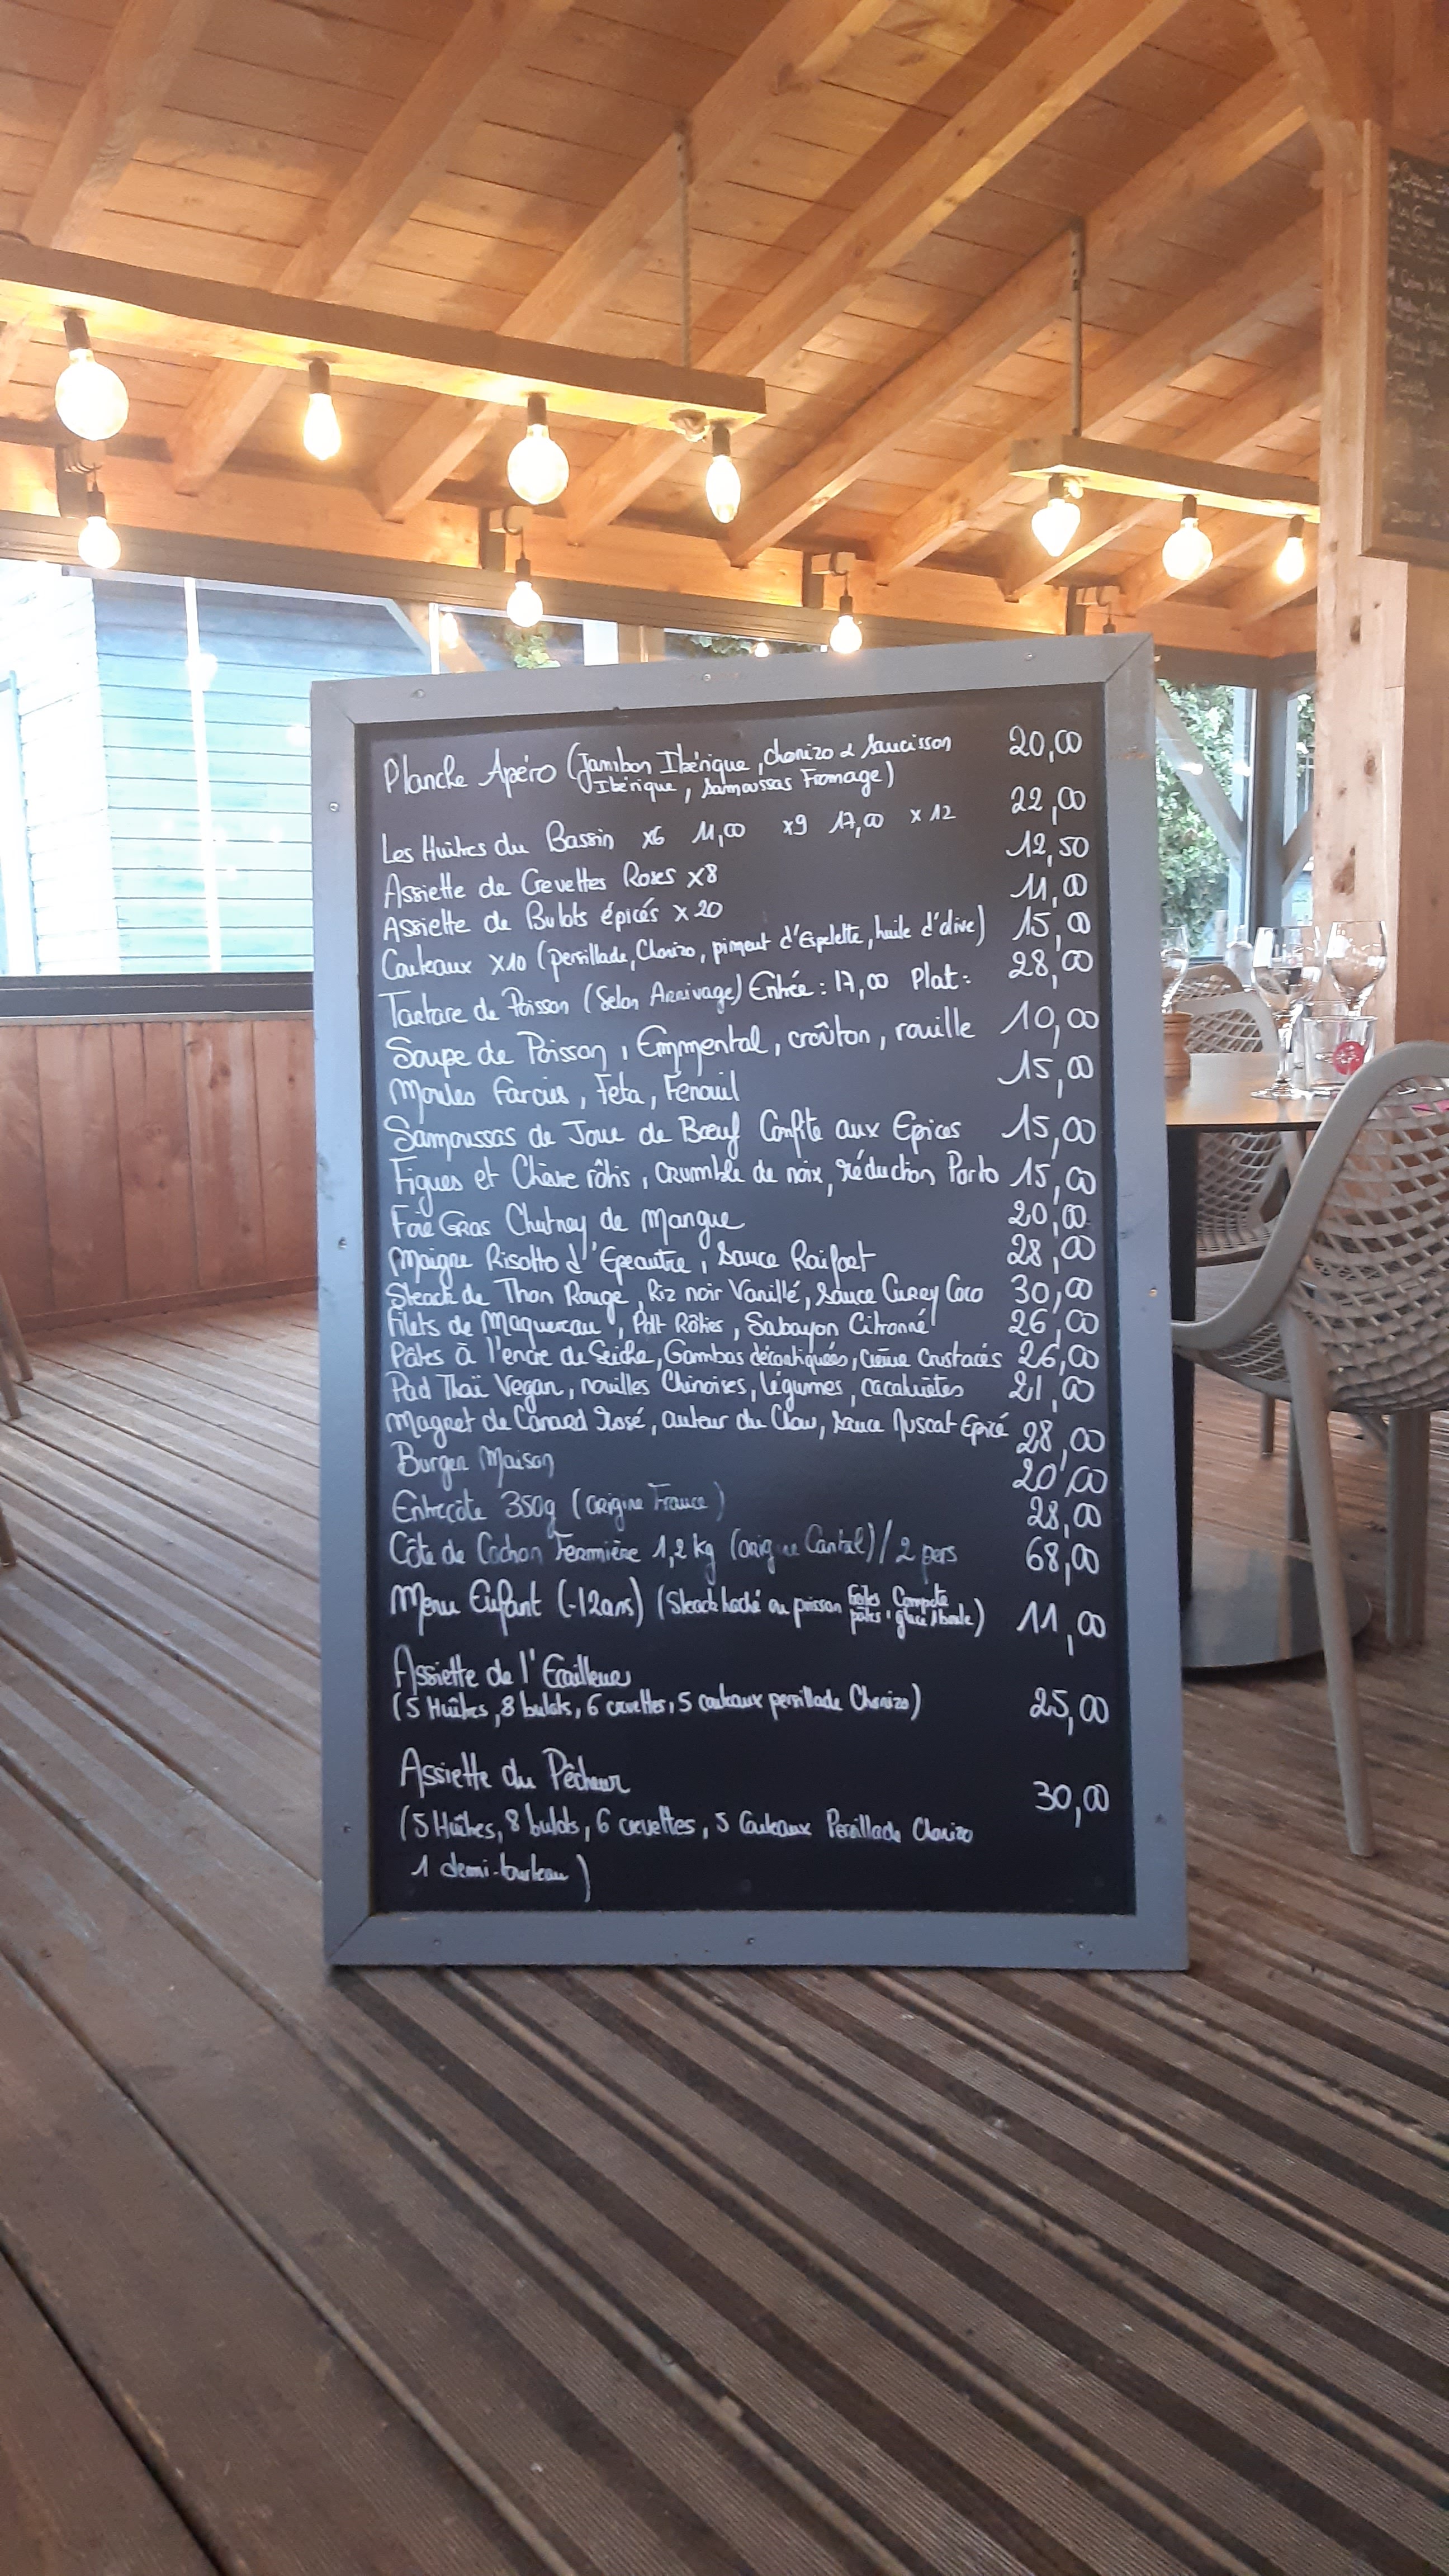 Planche Apéro (Jambon Ibérique, Chorizo & Saucisson 20,00
Ibérique, Samoussas Fromage)
Les Huîtres du Bassin x6 11,00 x9 17,00 x12 22,00
Assiette de Crevettes Roses x8 12,50
Assiette de Bulots épicés x20 11,00
Couteaux x10 (persillade, Chorizo, piment d'Espelette, huile d'olive) 15,00
Tartare de Poisson (Selon Arrivage) Entrée : 17,00 Plat : 28,00
Soupe de Poisson, Emmental, croûton, rouille 10,00
Moules Farcies, Feta, Fenouil 15,00
Samoussas de Joue de Bœuf Confite aux Epices 15,00
Figues et Chèvre rôtis, crumble de noix, réduction Porto 15,00
Foie Gras Chutney de Mangue 20,00
Maigre Risotto d'Epeautre, sauce Raifort 28,00
Steack de Thon Rouge, Riz noir Vanillé, sauce Curry Coco 30,00
Filets de Maquereau, Pdt Rôties, Sabayon Citronné 26,00
Pâtes à l'encre de Seiche, Gambas décortiquées, crème crustacés 26,00
Pad Thaï Vegan, nouilles Chinoises, légumes, cacahuètes 21,00
Magret de Canard Rosé, autour du Chou, sauce Muscat Epicé 28,00
Burger Maison 20,00
Entrecôte 350g (origine France) 28,00
Côte de Cochon Fermière 1,2 kg (origine Cantal) / 2 pers 68,00
Menu Enfant (-12ans) (Steack haché ou poisson frites pâtes, Compote glace 1 boule) 11,00
Assiette de l'Ecailleur
(5 Huîtres, 8 bulots, 6 crevettes, 5 couteaux persillade Chorizo) 25,00
Assiette du Pêcheur
30,00
(5 Huîtres, 8 bulots, 6 crevettes, 5 Couteaux Persillade Chorizo
1 demi-tourteau)